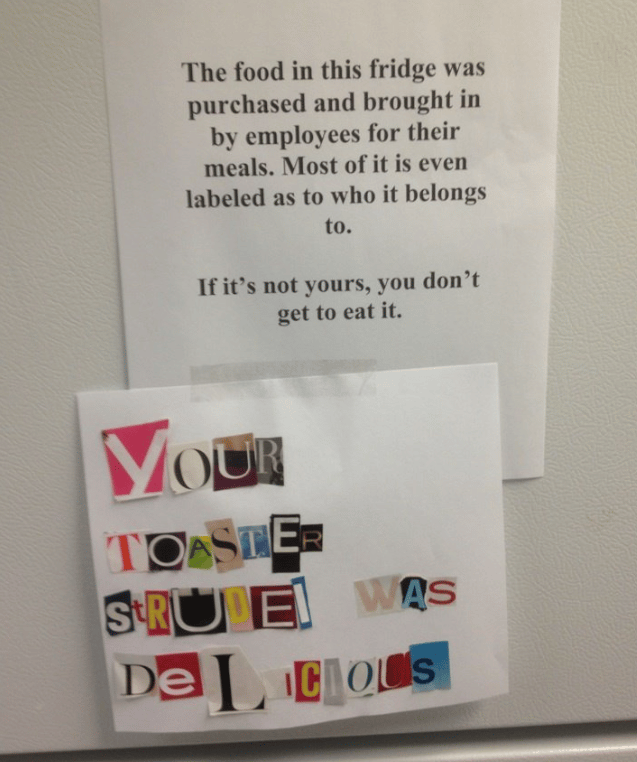 The food in this fridge was
purchased and brought in
by employees for their
meals. Most of it is even
labeled as to who it belongs
to.
If it's not yours, you don't
get to eat it.
YOUR
TOASTER
StRUDEl WAS
DeLICIOUS